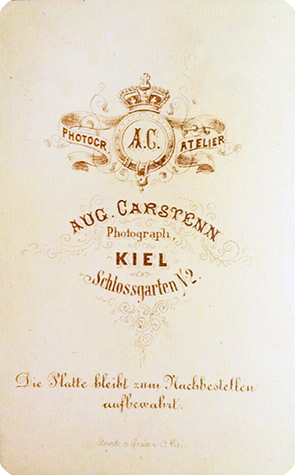 PHOTOGR. A.C. ATELIER
AUG. CARSTENN
Photograph
KIEL
Schlossgarten N° 2.
Die Platte bleibt zum Nachbestellen
aufbewahrt.